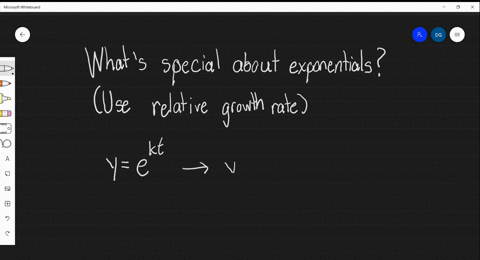 Microsoft Whiteboard
DG
What's special about exponentials?
(Use relative growth rate)
y = e^{kt} → v